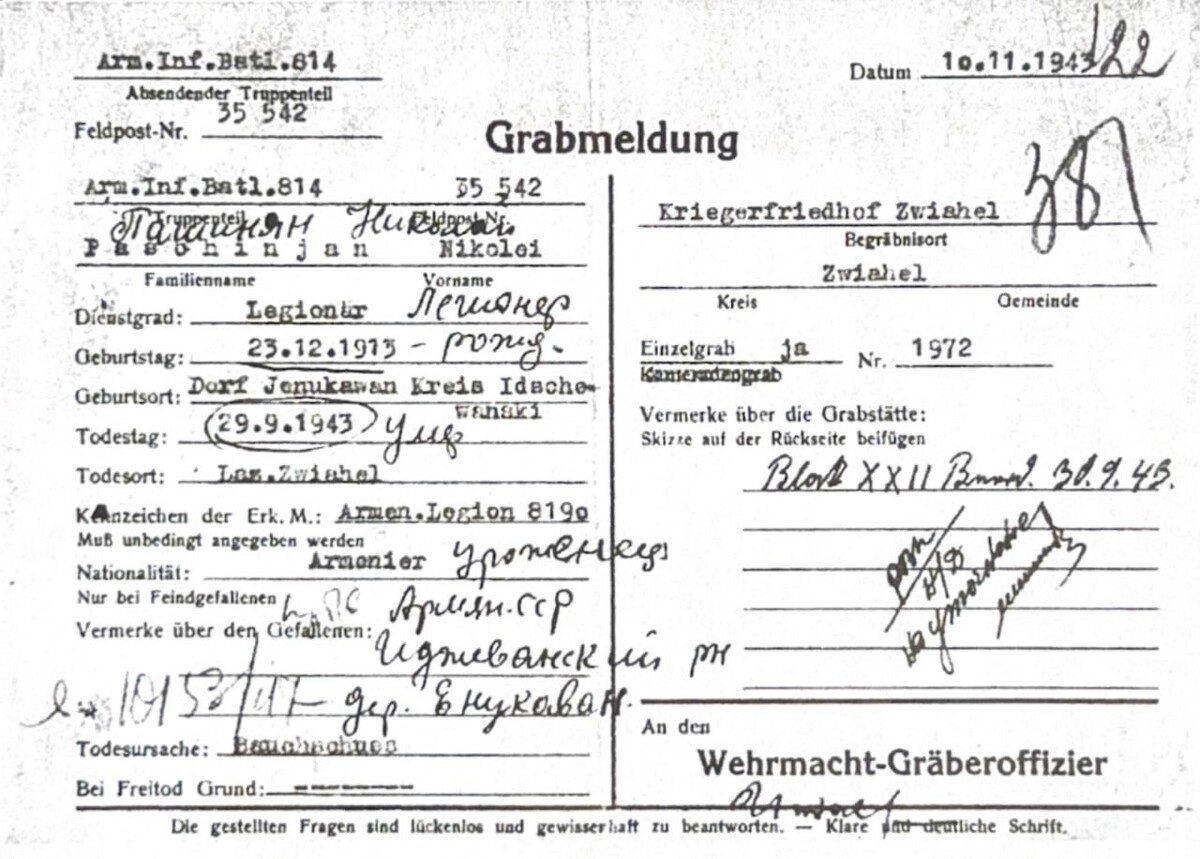 Arm.Inf.Batl.814
Absendender Truppenteil
Feldpost-Nr. 35 542
Datum 10.11.1943
122
Grabmeldung
381
Arm.Inf.Batl.814 35 542
Truppenteil Feldpost-Nr.
Пашинян Николай
Paschinjan Nikolei
Familienname Vorname
Dienstgrad: Legionär Легионер
Geburtstag: 23.12.1913 - рожд.
Geburtsort: Dorf Jenukawan Kreis Idsche-
wanski
Todestag: 29.9.1943 умер
Todesort: Laz.Zwiahel
Kennzeichen der Erk. M.: Armen.Legion 8190
Muß unbedingt angegeben werden
Nationalität: Armenier уроженец
Nur bei Feindgefallenen
Армян.ССР
Vermerke über den Gefallenen:
Иджеванский рн
дер. Енукаван.
Todesursache: Bauchschuss
Bei Freitod Grund: --------
Kriegerfriedhof Zwiahel
Begräbnisort
Zwiahel
Kreis Gemeinde
Einzelgrab ja Nr. 1972
Kameradengrab
Vermerke über die Grabstätte:
Skizze auf der Rückseite beifügen
Block XXII 30.9.43.
An den
Wehrmacht-Gräberoffizier
Die gestellten Fragen sind lückenlos und gewissenhaft zu beantworten. — Klare und deutliche Schrift.